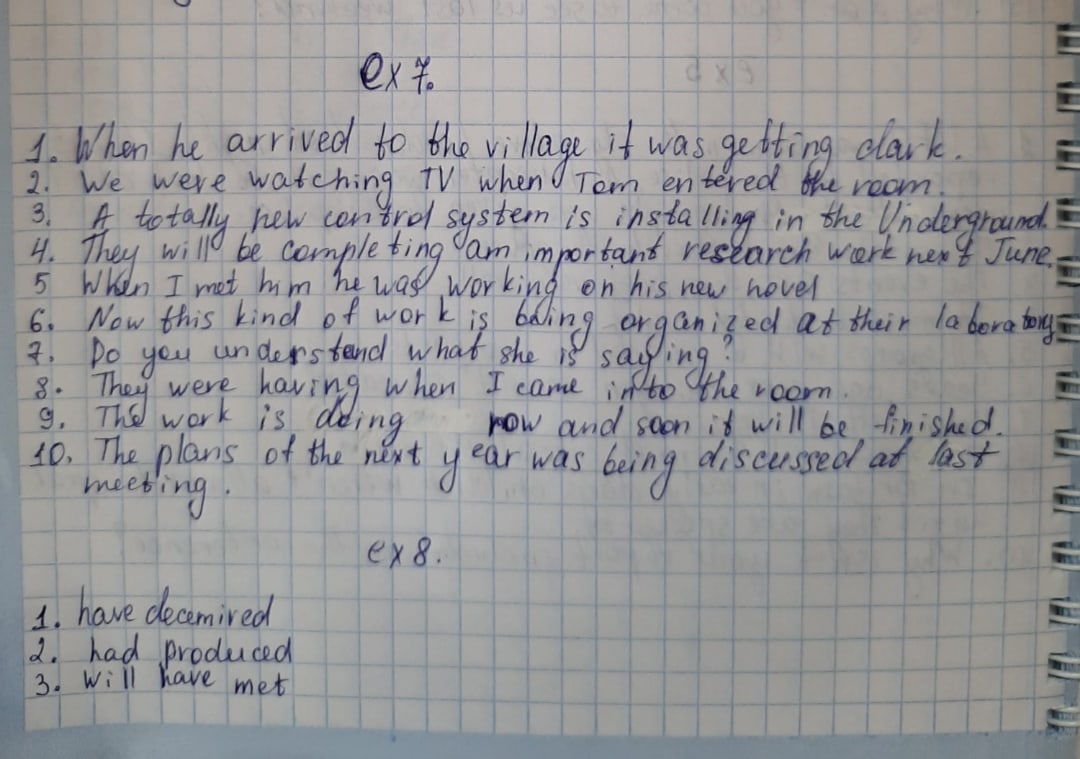 ex 7.
1. When he arrived to the village it was getting dark.
2. We were watching TV when Tom entered the room.
3. A totally new control system is installing in the Underground.
4. They will be completing am important research work next June.
5 When I met him he was working on his new novel
6. Now this kind of work is being organized at their laboratory
7. Do you understand what she is saying?
8. They were having when I came into the room.
9. The work is doing now and soon it will be finished.
10. The plans of the next year was being discussed at last
meeting.
ex 8.
1. have decemired
2. had produced
3. will have met